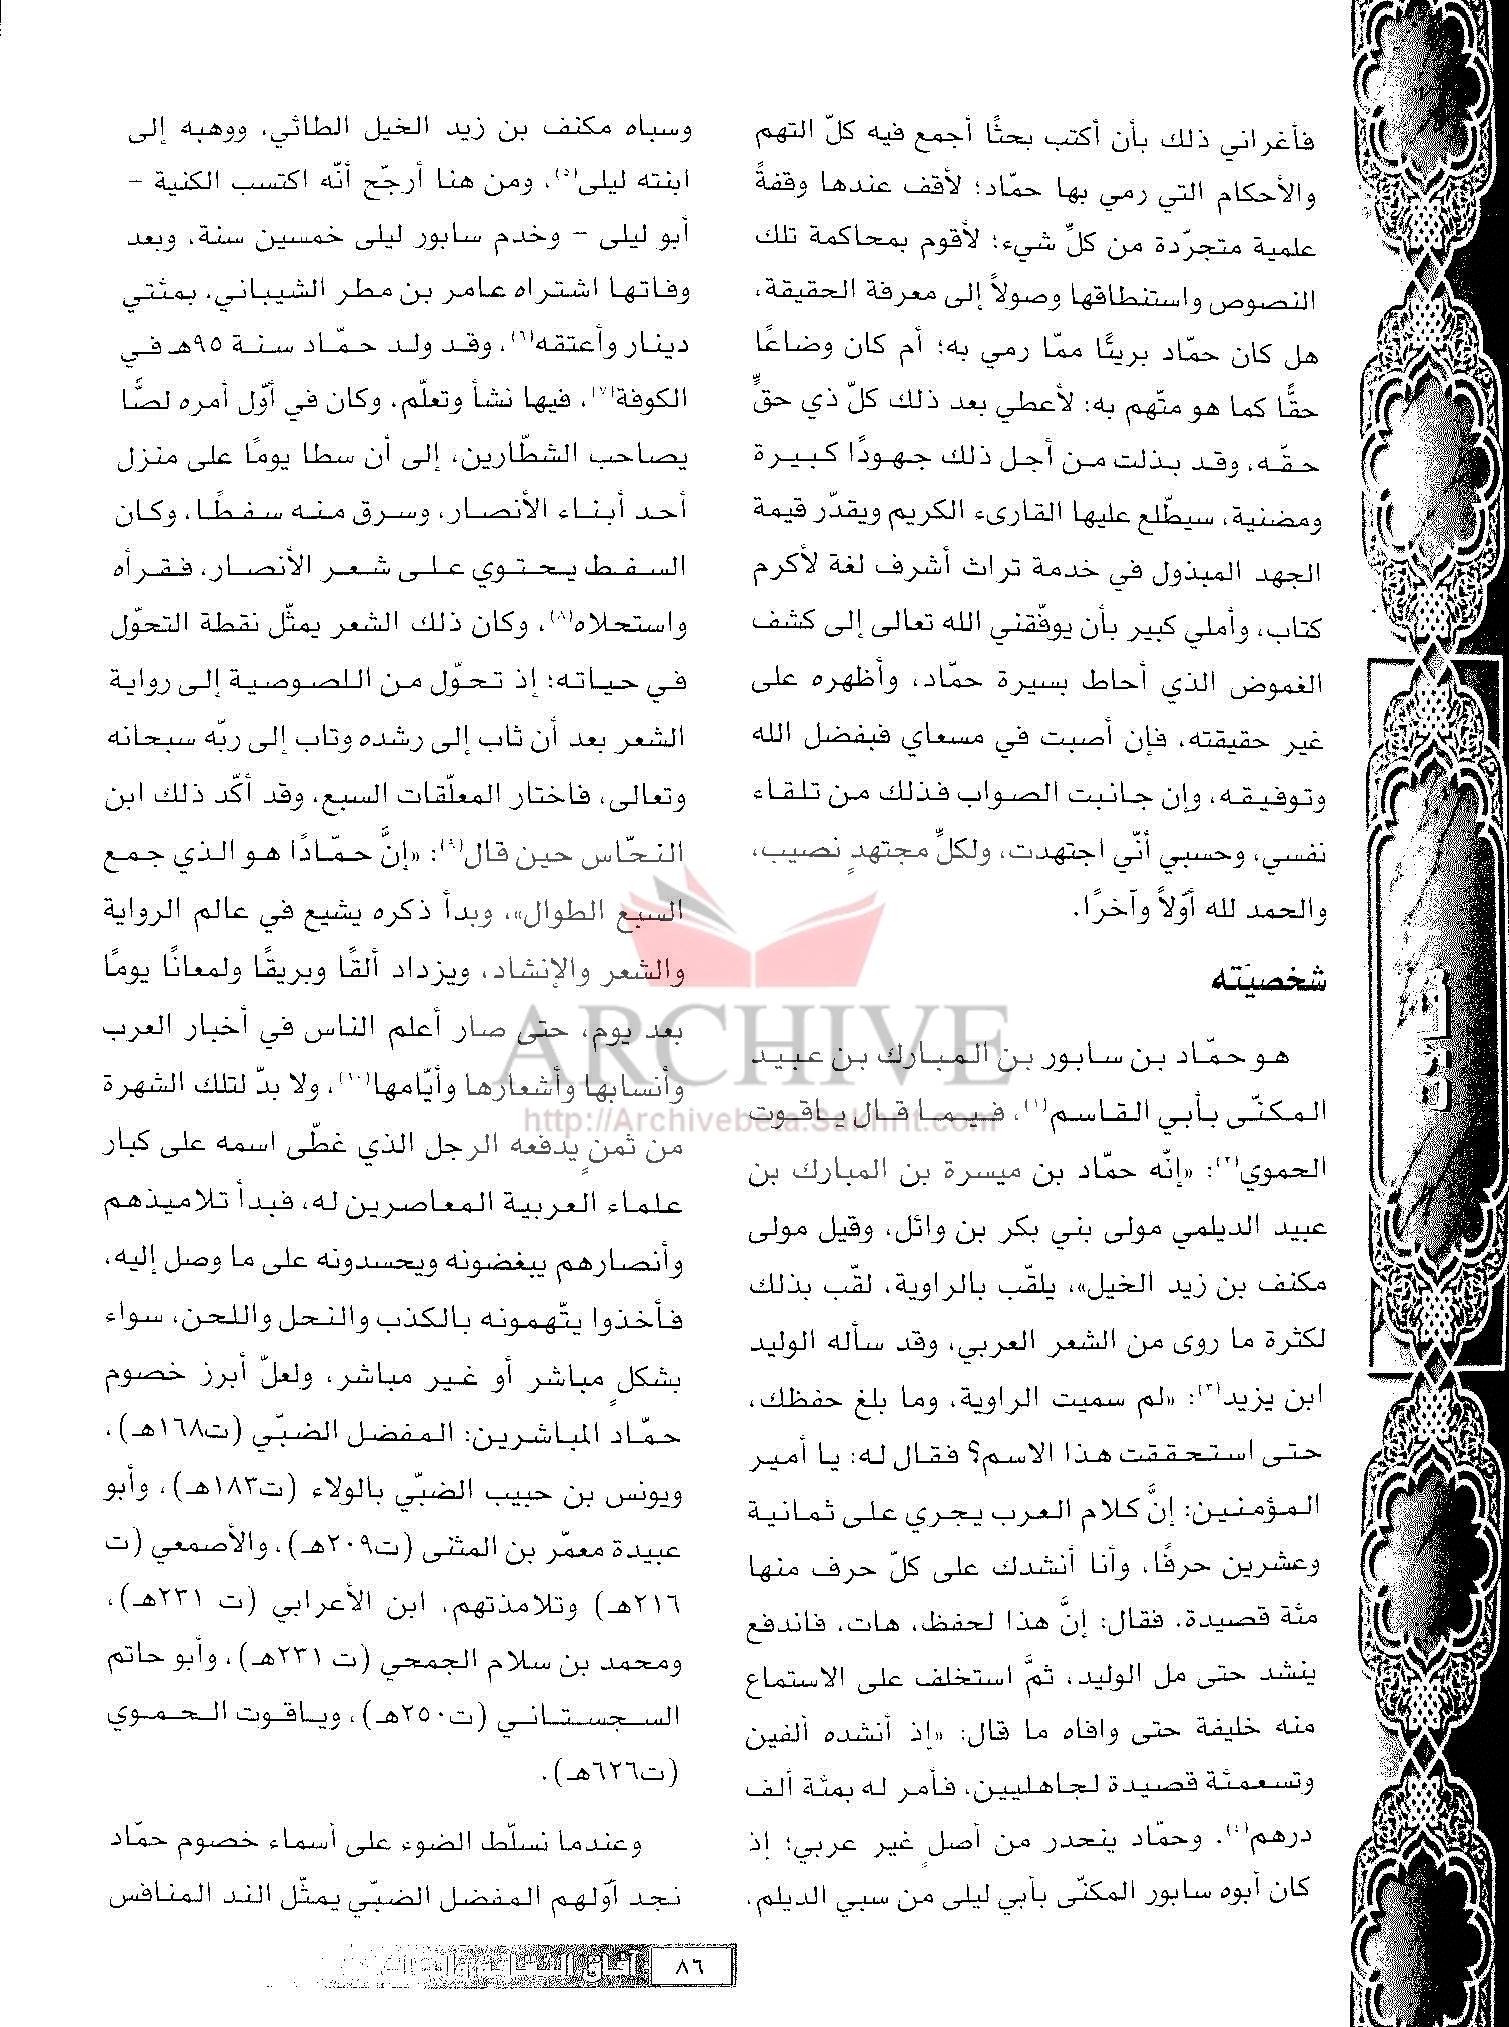 فأغراني ذلك بأن أكتب بحثًا أجمع فيه كلّ التهم
والأحكام التي رمي بها حمّاد؛ لأقف عندها وقفةً
علمية متجرّدة من كلِّ شيء؛ لأقوم بمحاكمة تلك
النصوص واستنطاقها وصولاً إلى معرفة الحقيقة،
هل كان حمّاد بريئًا ممّا رمي به؛ أم كان وضاعًا
حقًّا كما هو متّهم به؛ لأعطي بعد ذلك كلّ ذي حقٍّ
حقّه، وقد بذلت من أجل ذلك جهودًا كبيرة
ومضنية، سيطّلع عليها القارىء الكريم ويقدّر قيمة
الجهد المبذول في خدمة تراث أشرف لغة لأكرم
كتاب، وأملي كبير بأن يوفّقني الله تعالى إلى كشف
الغموض الذي أحاط بسيرة حمّاد، وأظهره على
غير حقيقته، فإن أصبت في مسعاي فبفضل الله
وتوفيقه، وإن جانبت الصواب فذلك من تلقاء
نفسي، وحسبي أنّي اجتهدت، ولكلِّ مجتهدٍ نصيب،
والحمد لله أوّلاً وآخرًا.
شخصيّته
هو حمّاد بن سابور بن المبارك بن عبيد
المكنّى بأبي القاسم(١)، فيما قال ياقوت
الحموي(٢): «إنّه حمّاد بن ميسرة بن المبارك بن
عبيد الديلمي مولى بني بكر بن وائل، وقيل مولى
مكنف بن زيد الخيل»، يلقّب بالراوية، لقّب بذلك
لكثرة ما روى من الشعر العربي، وقد سأله الوليد
ابن يزيد(٣): «لم سميت الراوية، وما بلغ حفظك،
حتى استحققت هذا الاسم؟ فقال له: يا أمير
المؤمنين: إنَّ كلام العرب يجري على ثمانية
وعشرين حرفًا، وأنا أنشدك على كلّ حرف منها
مئة قصيدة. فقال: إنَّ هذا لحفظ، هات، فاندفع
ينشد حتى مل الوليد، ثمَّ استخلف على الاستماع
منه خليفة حتى وافاه ما قال: «إذ أنشده ألفين
وتسعمئة قصيدة لجاهليين، فأمر له بمئة ألف
درهم(٤). وحمّاد ينحدر من أصلٍ غير عربي؛ إذ
كان أبوه سابور المكنّى بأبي ليلى من سبي الديلم،
وسباه مكنف بن زيد الخيل الطائي، ووهبه إلى
ابنته ليلى(٥)، ومن هنا أرجّح أنّه اكتسب الكنية -
أبو ليلى - وخدم سابور ليلى خمسين سنة، وبعد
وفاتها اشتراه عامر بن مطر الشيباني، بمئتي
دينار وأعتقه(٦)، وقد ولد حمّاد سنة ٩٥هـ في
الكوفة(٧)، فيها نشأ وتعلّم، وكان في أوّل أمره لصًّا
يصاحب الشطّارين، إلى أن سطا يومًا على منزل
أحد أبناء الأنصار، وسرق منه سفطًا، وكان
السفط يحتوي على شعر الأنصار، فقرأه
واستحلاه(٨)، وكان ذلك الشعر يمثّل نقطة التحوّل
في حياته؛ إذ تحوّل من اللصوصية إلى رواية
الشعر بعد أن ثاب إلى رشده وتاب إلى ربّه سبحانه
وتعالى، فاختار المعلّقات السبع، وقد أكّد ذلك ابن
النحّاس حين قال(٩): «إنَّ حمّادًا هو الذي جمع
السبع الطوال»، وبدأ ذكره يشيع في عالم الرواية
والشعر والإنشاد، ويزداد ألقًا وبريقًا ولمعانًا يومًا
بعد يوم، حتى صار أعلم الناس في أخبار العرب
وأنسابها وأشعارها وأيّامها(١٠)، ولا بدّ لتلك الشهرة
من ثمنٍ يدفعه الرجل الذي غطّى اسمه على كبار
علماء العربية المعاصرين له، فبدأ تلاميذهم
وأنصارهم يبغضونه ويحسدونه على ما وصل إليه،
فأخذوا يتّهمونه بالكذب والنحل واللحن، سواء
بشكلٍ مباشر أو غير مباشر، ولعلّ أبرز خصوم
حمّاد المباشرين: المفضل الضبّي (ت١٦٨هـ)،
ويونس بن حبيب الضبّي بالولاء (ت١٨٣هـ)، وأبو
عبيدة معمّر بن المثنى (ت٢٠٩هـ)، والأصمعي (ت
٢١٦هـ) وتلامذتهم، ابن الأعرابي (ت ٢٣١هـ)،
ومحمد بن سلام الجمحي (ت ٢٣١هـ)، وأبو حاتم
السجستاني (ت٢٥٠هـ)، وياقوت الحموي
(ت٦٢٦هـ).
وعندما نسلّط الضوء على أسماء خصوم حمّاد
نجد أوّلهم المفضل الضبّي يمثّل الند المنافس
مقالات
ARCHIVE
http://Archivebeta.Sakhrit.com
٨٦
آفاق الثقافة والتراث